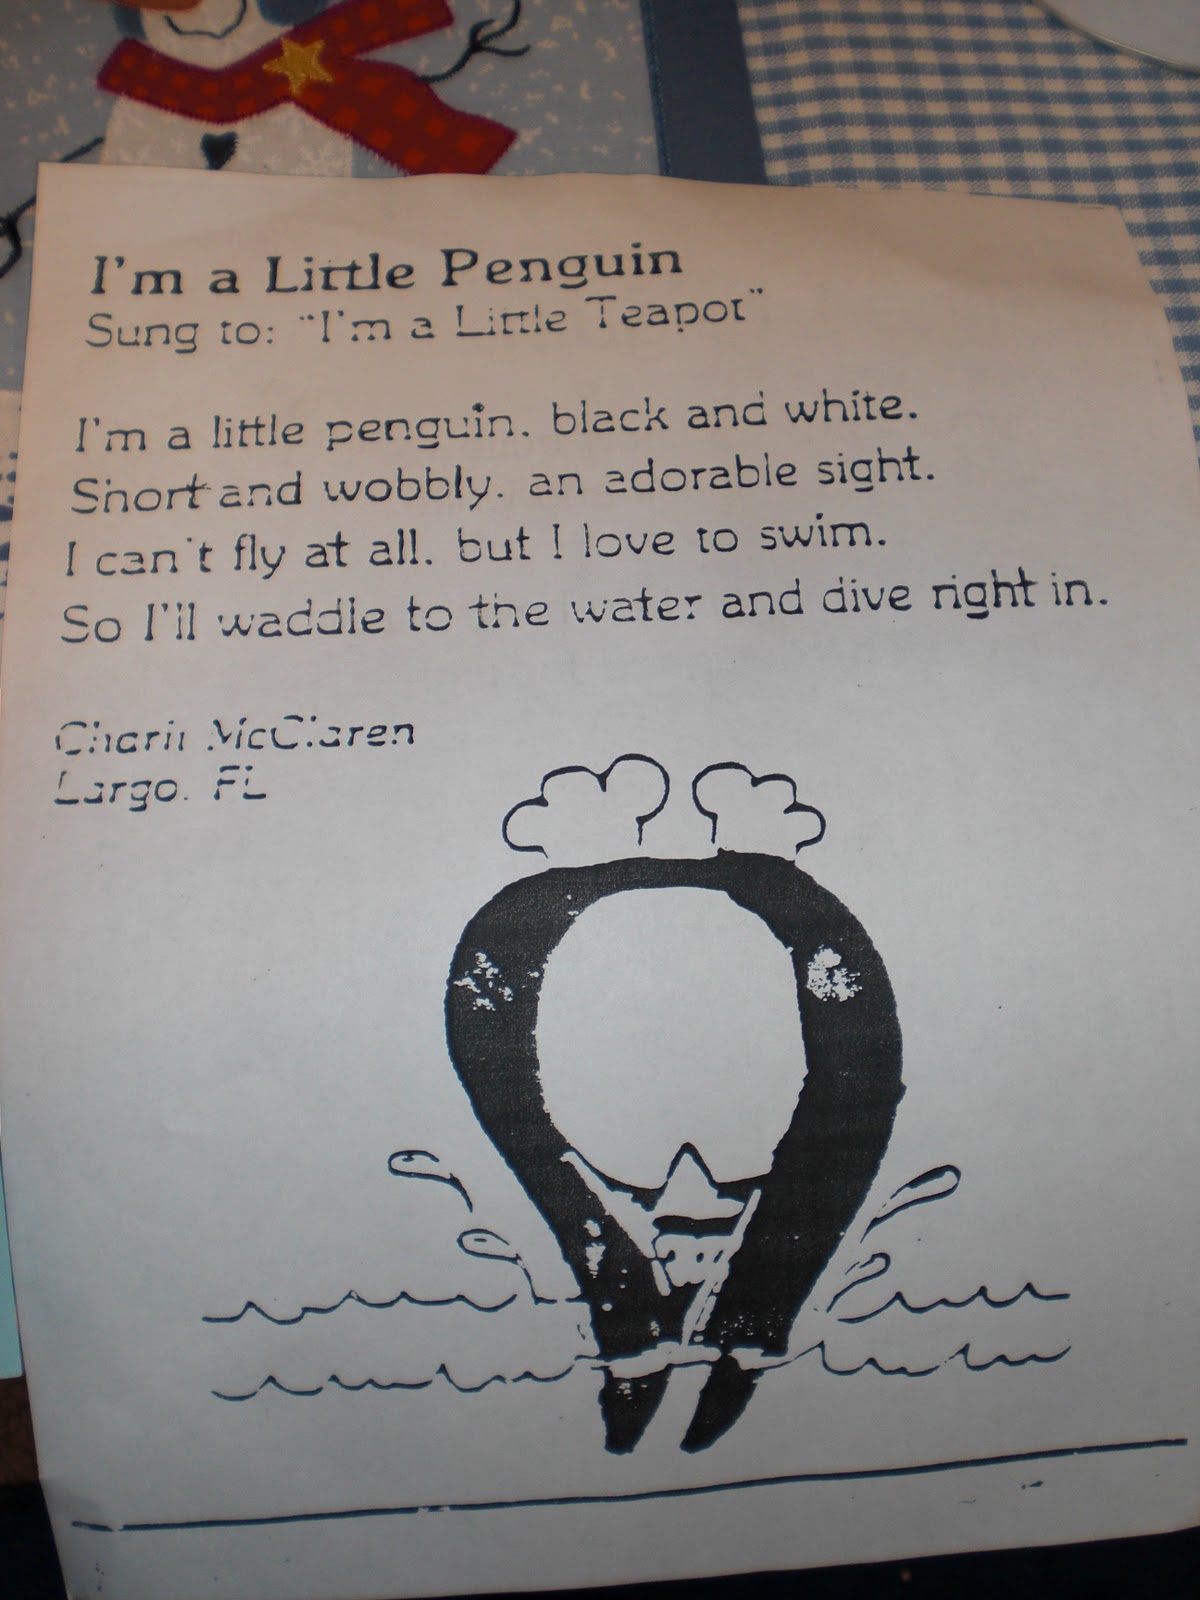 I'm a Little Penguin
Sung to: "I'm a Little Teapot"
I'm a little penguin, black and white.
Short and wobbly, an adorable sight.
I can't fly at all, but I love to swim.
So I'll waddle to the water and dive right in.
McClaren
Largo, FL